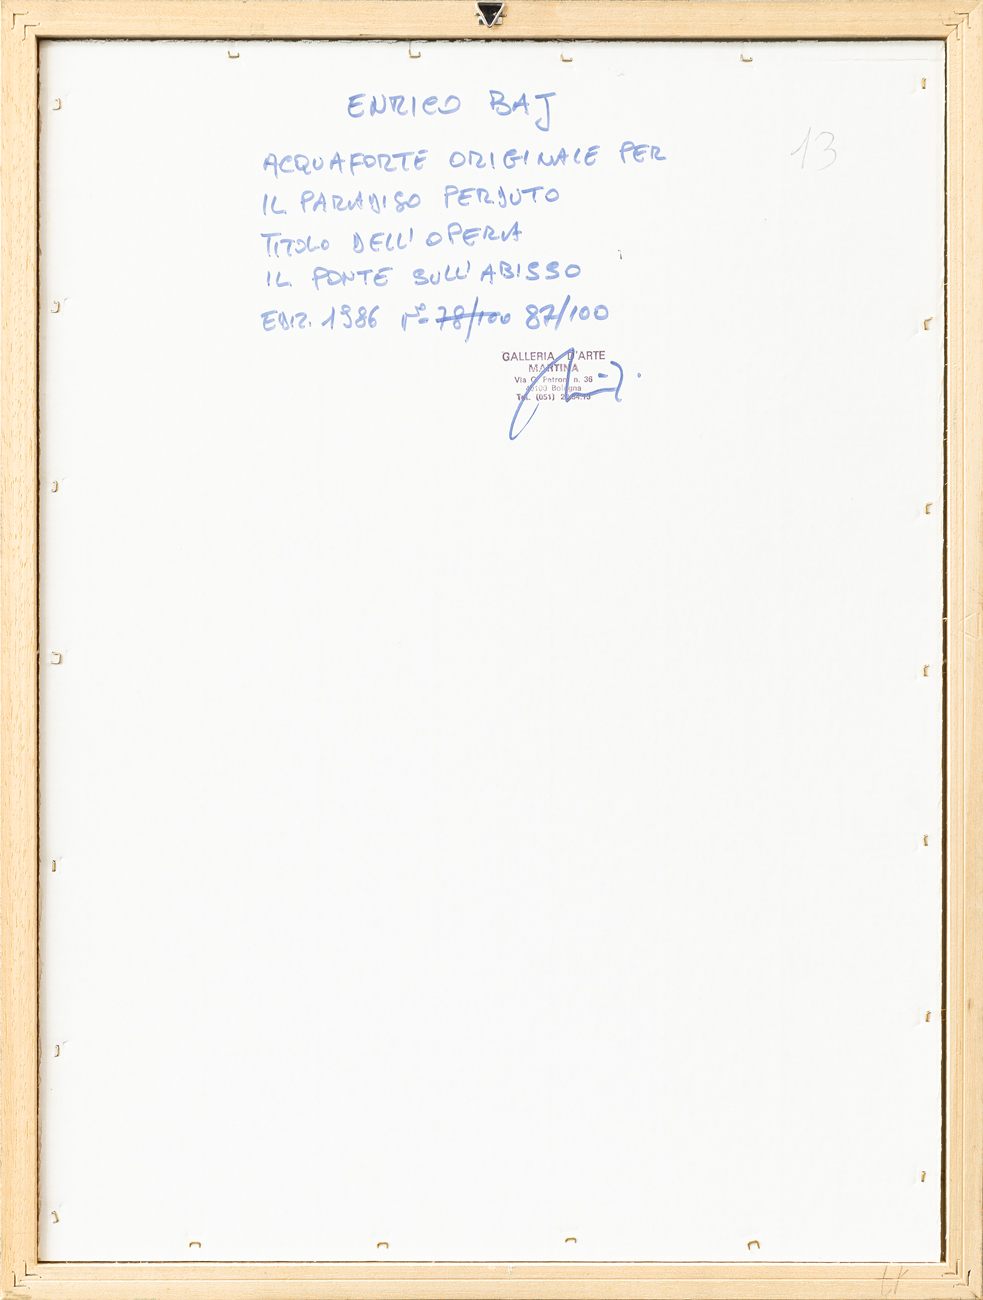 ENRICO BAJ
13
ACQUAFORTE ORIGINALE PER
IL PARADISO PERDUTO
TITOLO DELL'OPERA
IL PONTE SULL'ABISSO
EDIZ. 1986 N° 78/100 87/100
GALLERIA D'ARTE
MARTINA
Via G. Petroni n. 36
40100 Bologna
Tel. (051)